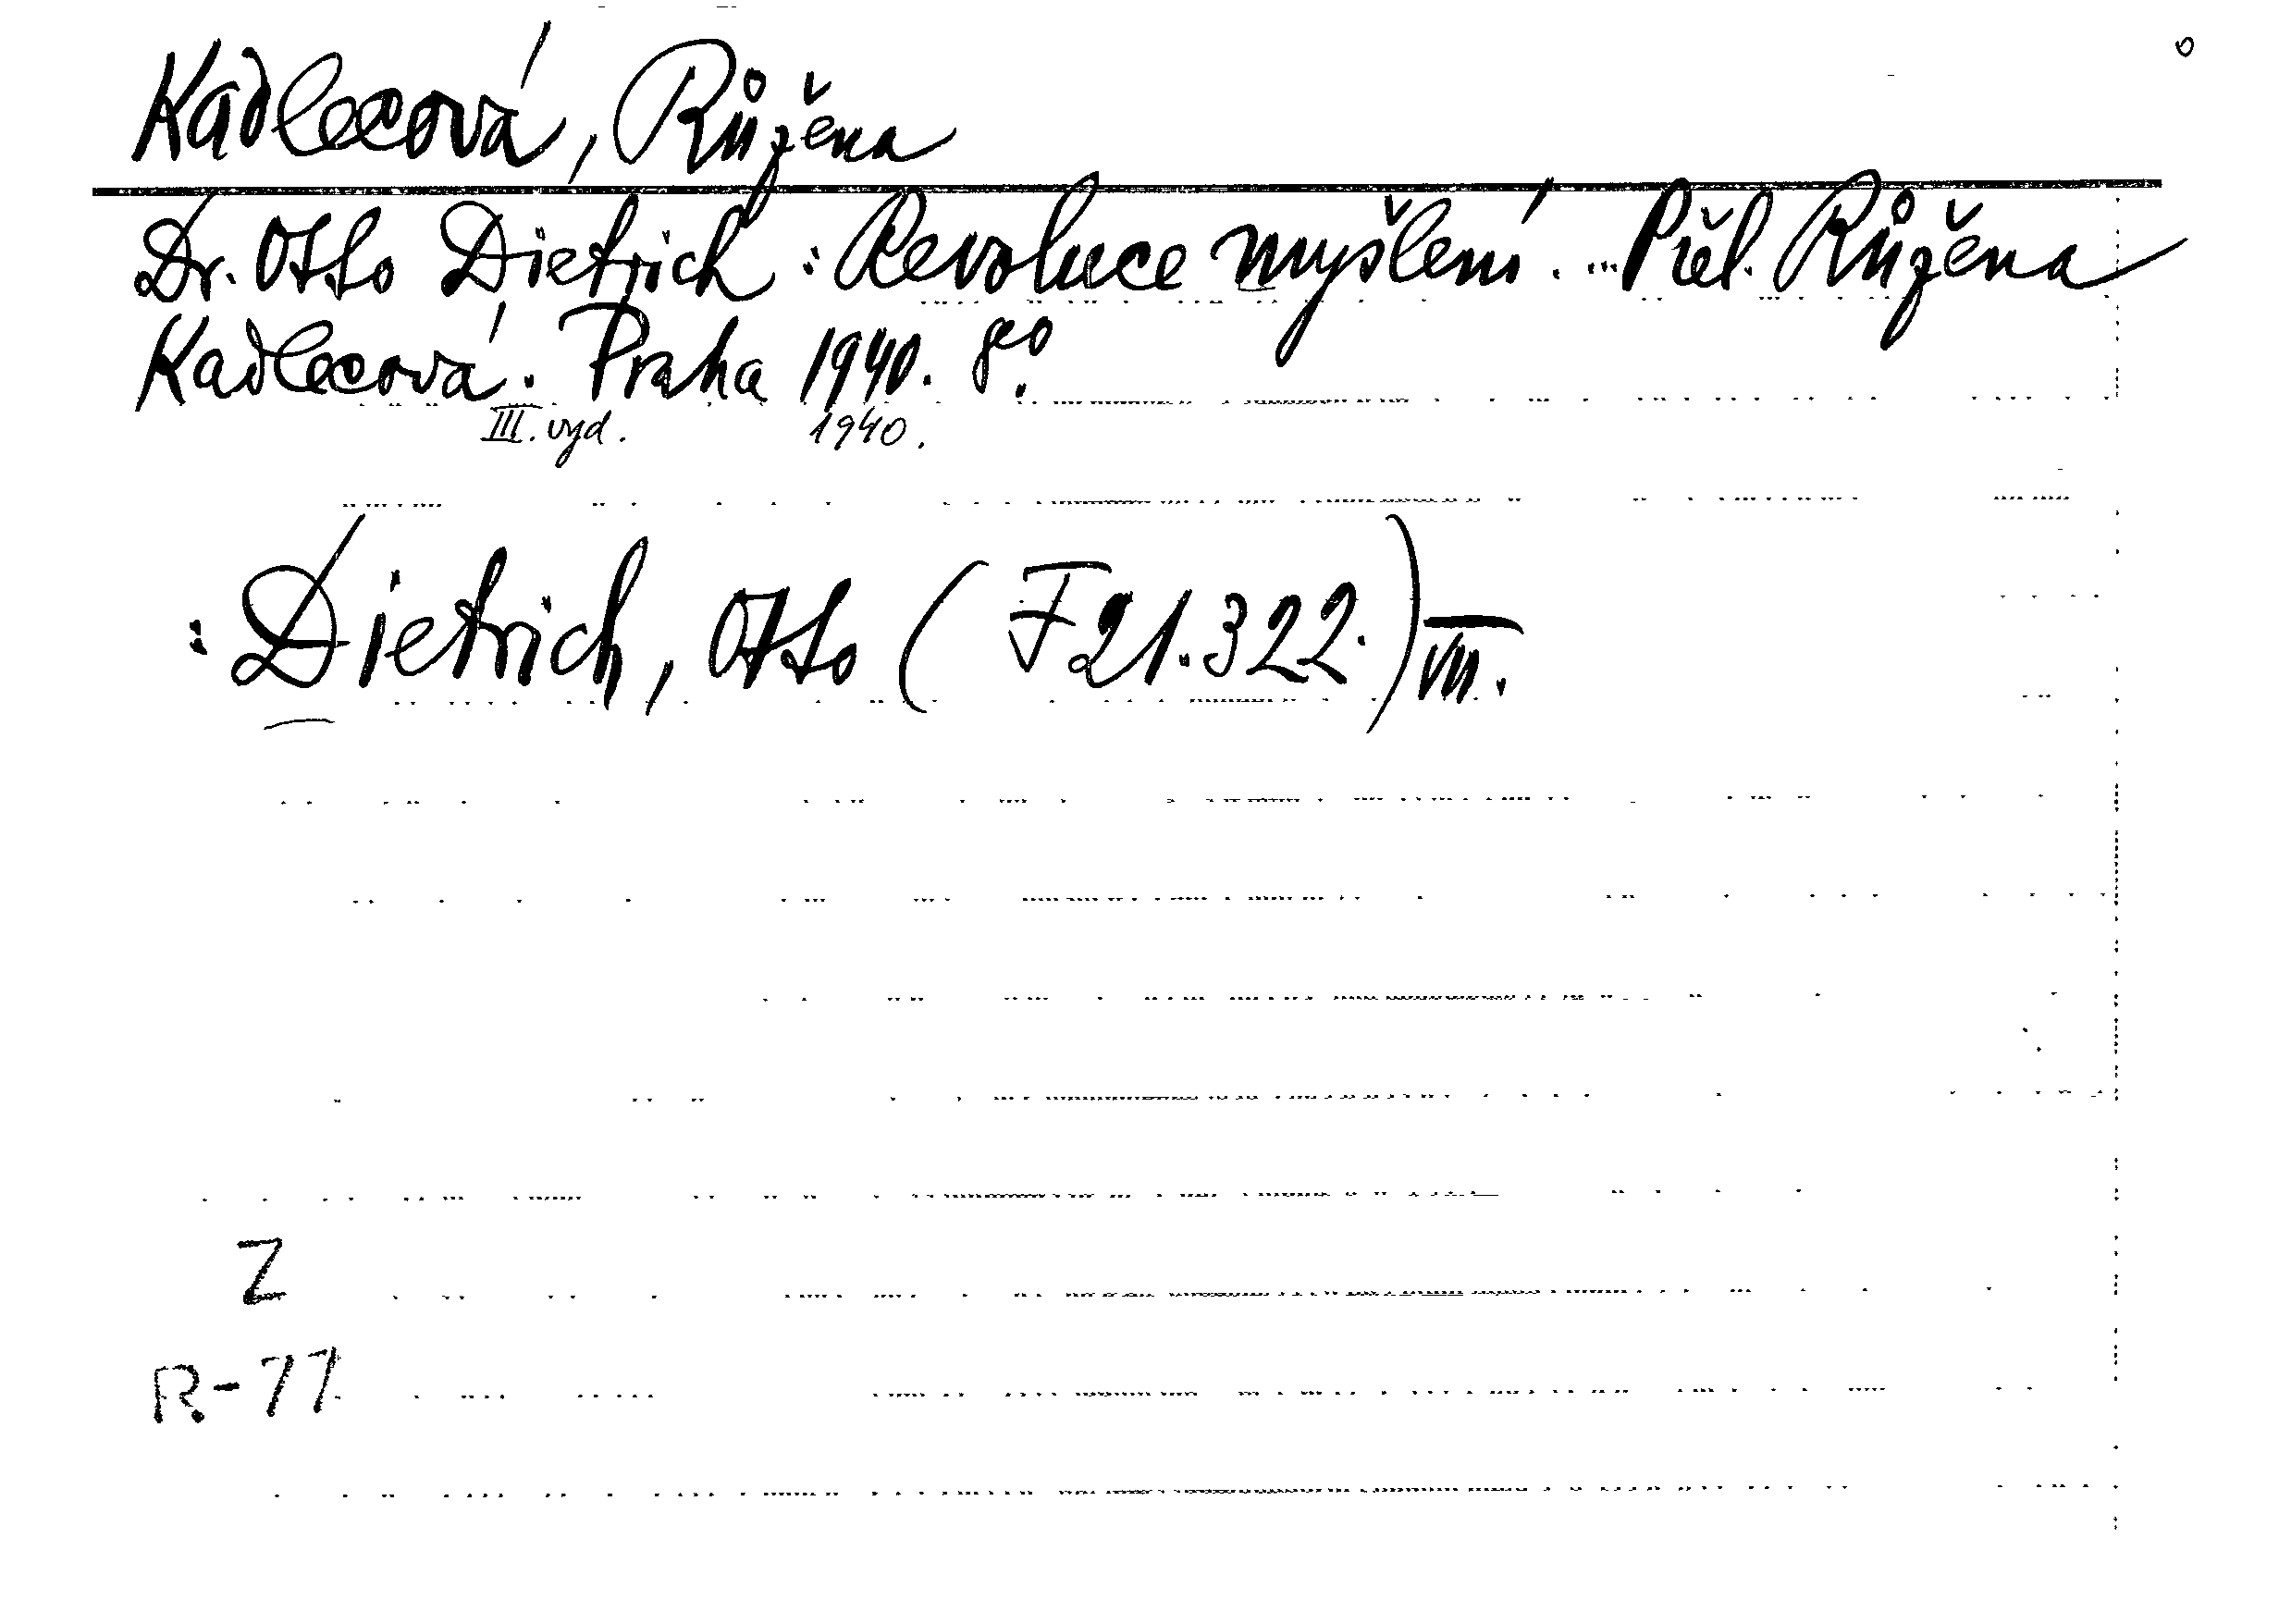 Kadlecová, Růžena
Dr. Otto Dietrich: Revoluce myšlení. ... Přel. Růžena
Kadlecová. Praha 1940. 8o.
III. vyd. 1940.
: Dietrich, Otto (F 21.322.) VII.
Z
R-77